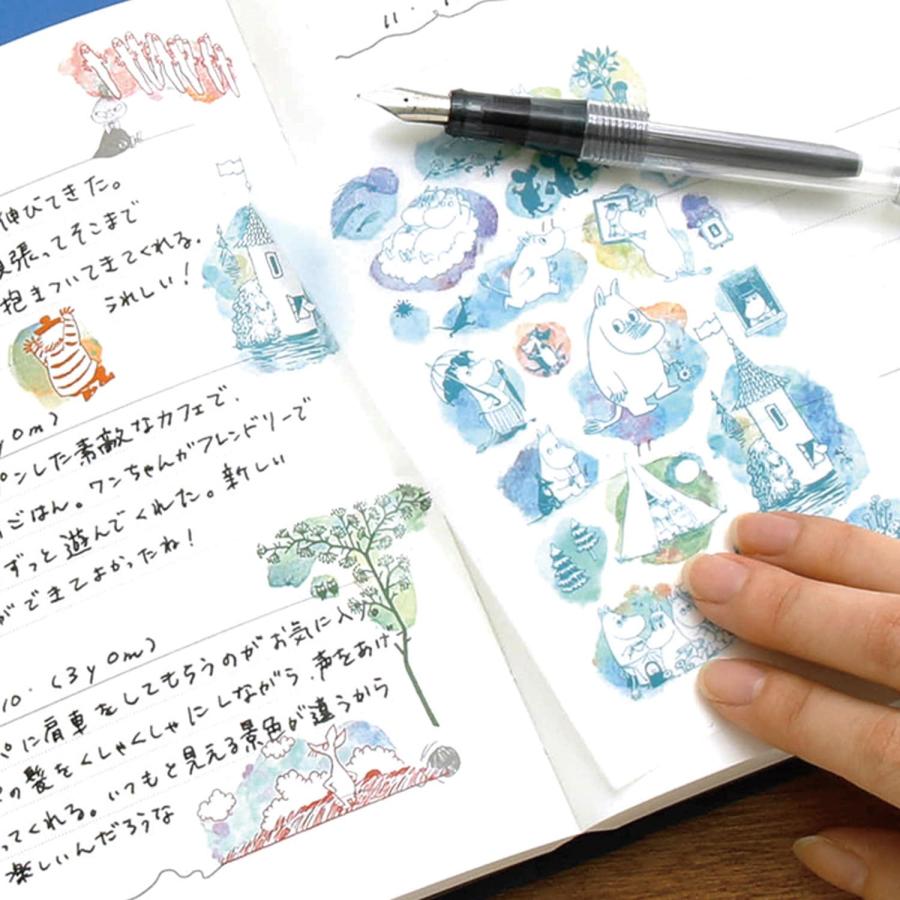 11.
伸びてきた。
張ってそこまで
抱きついてきてくれる。
うれしい！
y0m)
ンした素敵なカフェで、
ごはん。ワンちゃんがフレンドリーで
ずっと遊んでくれた。新しい
ができてよかったね！
10. (3y0m)
に肩車をしてもらうのがお気に入り。
の髪をくしゃくしゃにしながら、声をあげ
ってくれる。いつもと見える景色が違うから
楽しいんだろうな